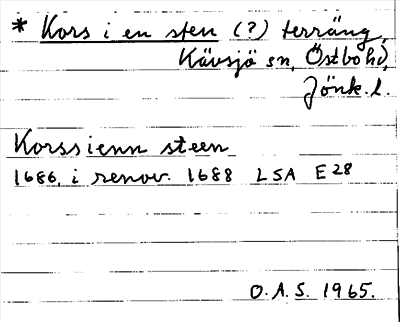 * Kors i en sten (?) terräng,
Kävsjö sn, Östbo hd,
Jönk. l.
Korssienn steen
1686, i renov. 1688 LSA E 28
O.A.S. 1965.